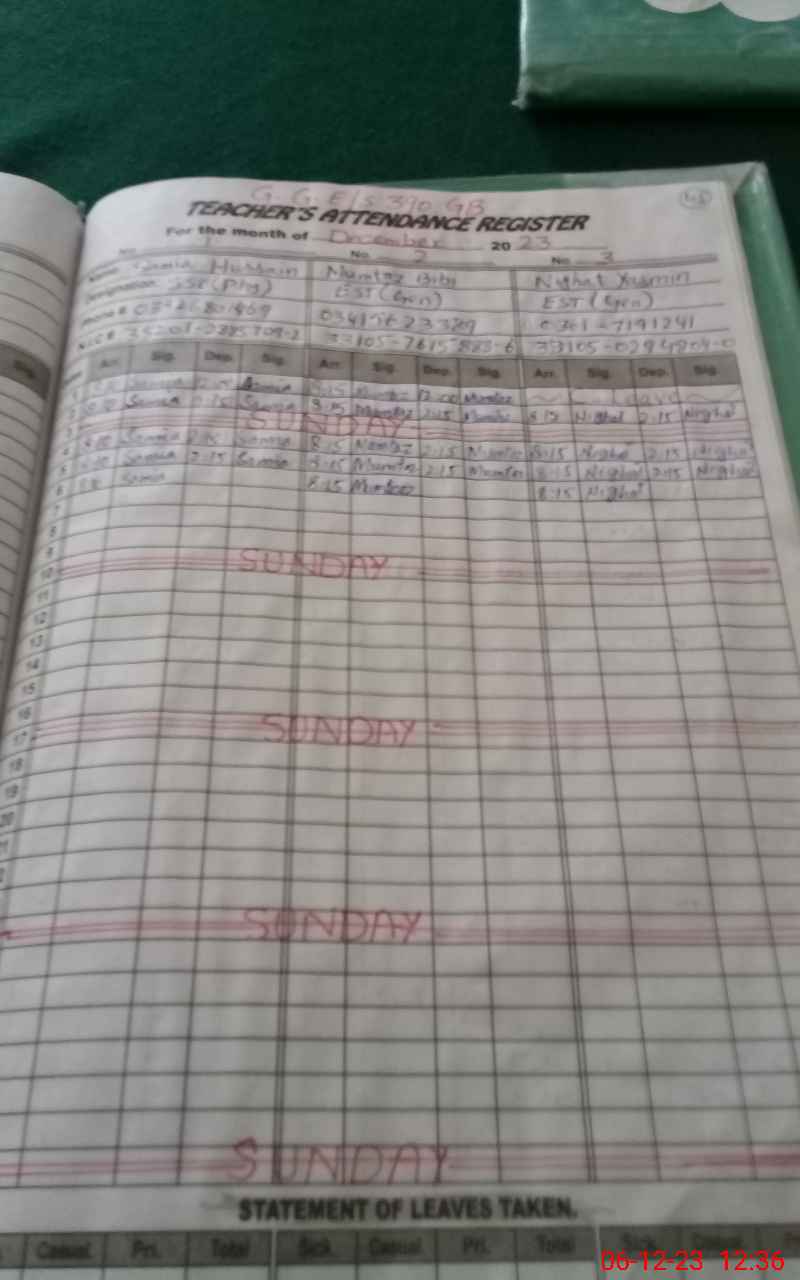 G. G. E/S 390 GB
TEACHER'S ATTENDANCE REGISTER
For the month of December 2023
No. 1 No. 2 No. 3
Name Samia Hussain Mumtaz Bibi Nighat Yasmin
Designation EST (Gen) EST (Gen)
Phone #
N.I.C #
Arr. Sig. Dep. Sig. Arr. Sig. Dep. Sig. Arr. Sig. Dep. Sig.
1 Samia 2:15 Samia 8:15 Mumtaz 12:00 Mumtaz Leave
2 Samia 2:15 Samia 8:15 Mumtaz 2:15 Mumtaz 8:15 Nighat 2:15 Nighat
3 SUNDAY
4 Samia 2:15 Samia 8:15 Mumtaz 2:15 Mumtaz 8:15 Nighat 2:15 Nighat
5 Samia 2:15 Samia 8:15 Mumtaz 2:15 Mumtaz 8:15 Nighat 2:15 Nighat
6 Samia 8:15 Mumtaz 8:15 Nighat
7
8
9
10 SUNDAY
11
12
13
14
15
16
17 SUNDAY
18
19
20
SUNDAY
SUNDAY
STATEMENT OF LEAVES TAKEN.
Casual Pri. Total Sick Casual Pri. Total Sick Casual
06-12-23 12:36